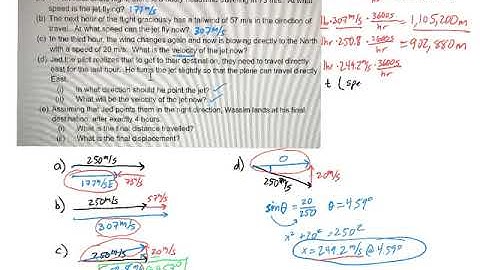 speed is the jet flying? 177m/s
(b) The next hour of the flight graciously has a tailwind of 57 m/s in the direction of
travel. At what speed can the jet fly now? 307m/s
(c) In the third hour, the wind changes again and now is blowing directly to the North
with a speed of 20m/s. What is the velocity of the jet now?
(d) Jed the pilot realizes that to get to their destination, they need to travel directly
east for this last hour. He turns the jet slightly so that the plane can travel directly
East.
(i) In what direction should he point the jet?
(ii) What will be the velocity of the jet now?
(e) Assuming that Jed points them in the right direction, Wassim lands at his final
destination, after exactly 4 hours.
(i) What is the final distance travelled?
(ii) What is the final displacement?
1h·307m/s · 3600s/hr = 1,105,200m
1hr·250.8 · 3600s/hr = 902,880m
1hr·249.2m/s · 3600s/hr
t (spe
a) 250m/s
177m/s E 73m/s
b) 250m/s 57m/s
307m/s
c) 250m/s 20m/s
d) θ
250m/s 20m/s
sinθ = 20/250 θ = 4.59°
x² + 20² = 250²
x = 249.2m/s @ 4.59°